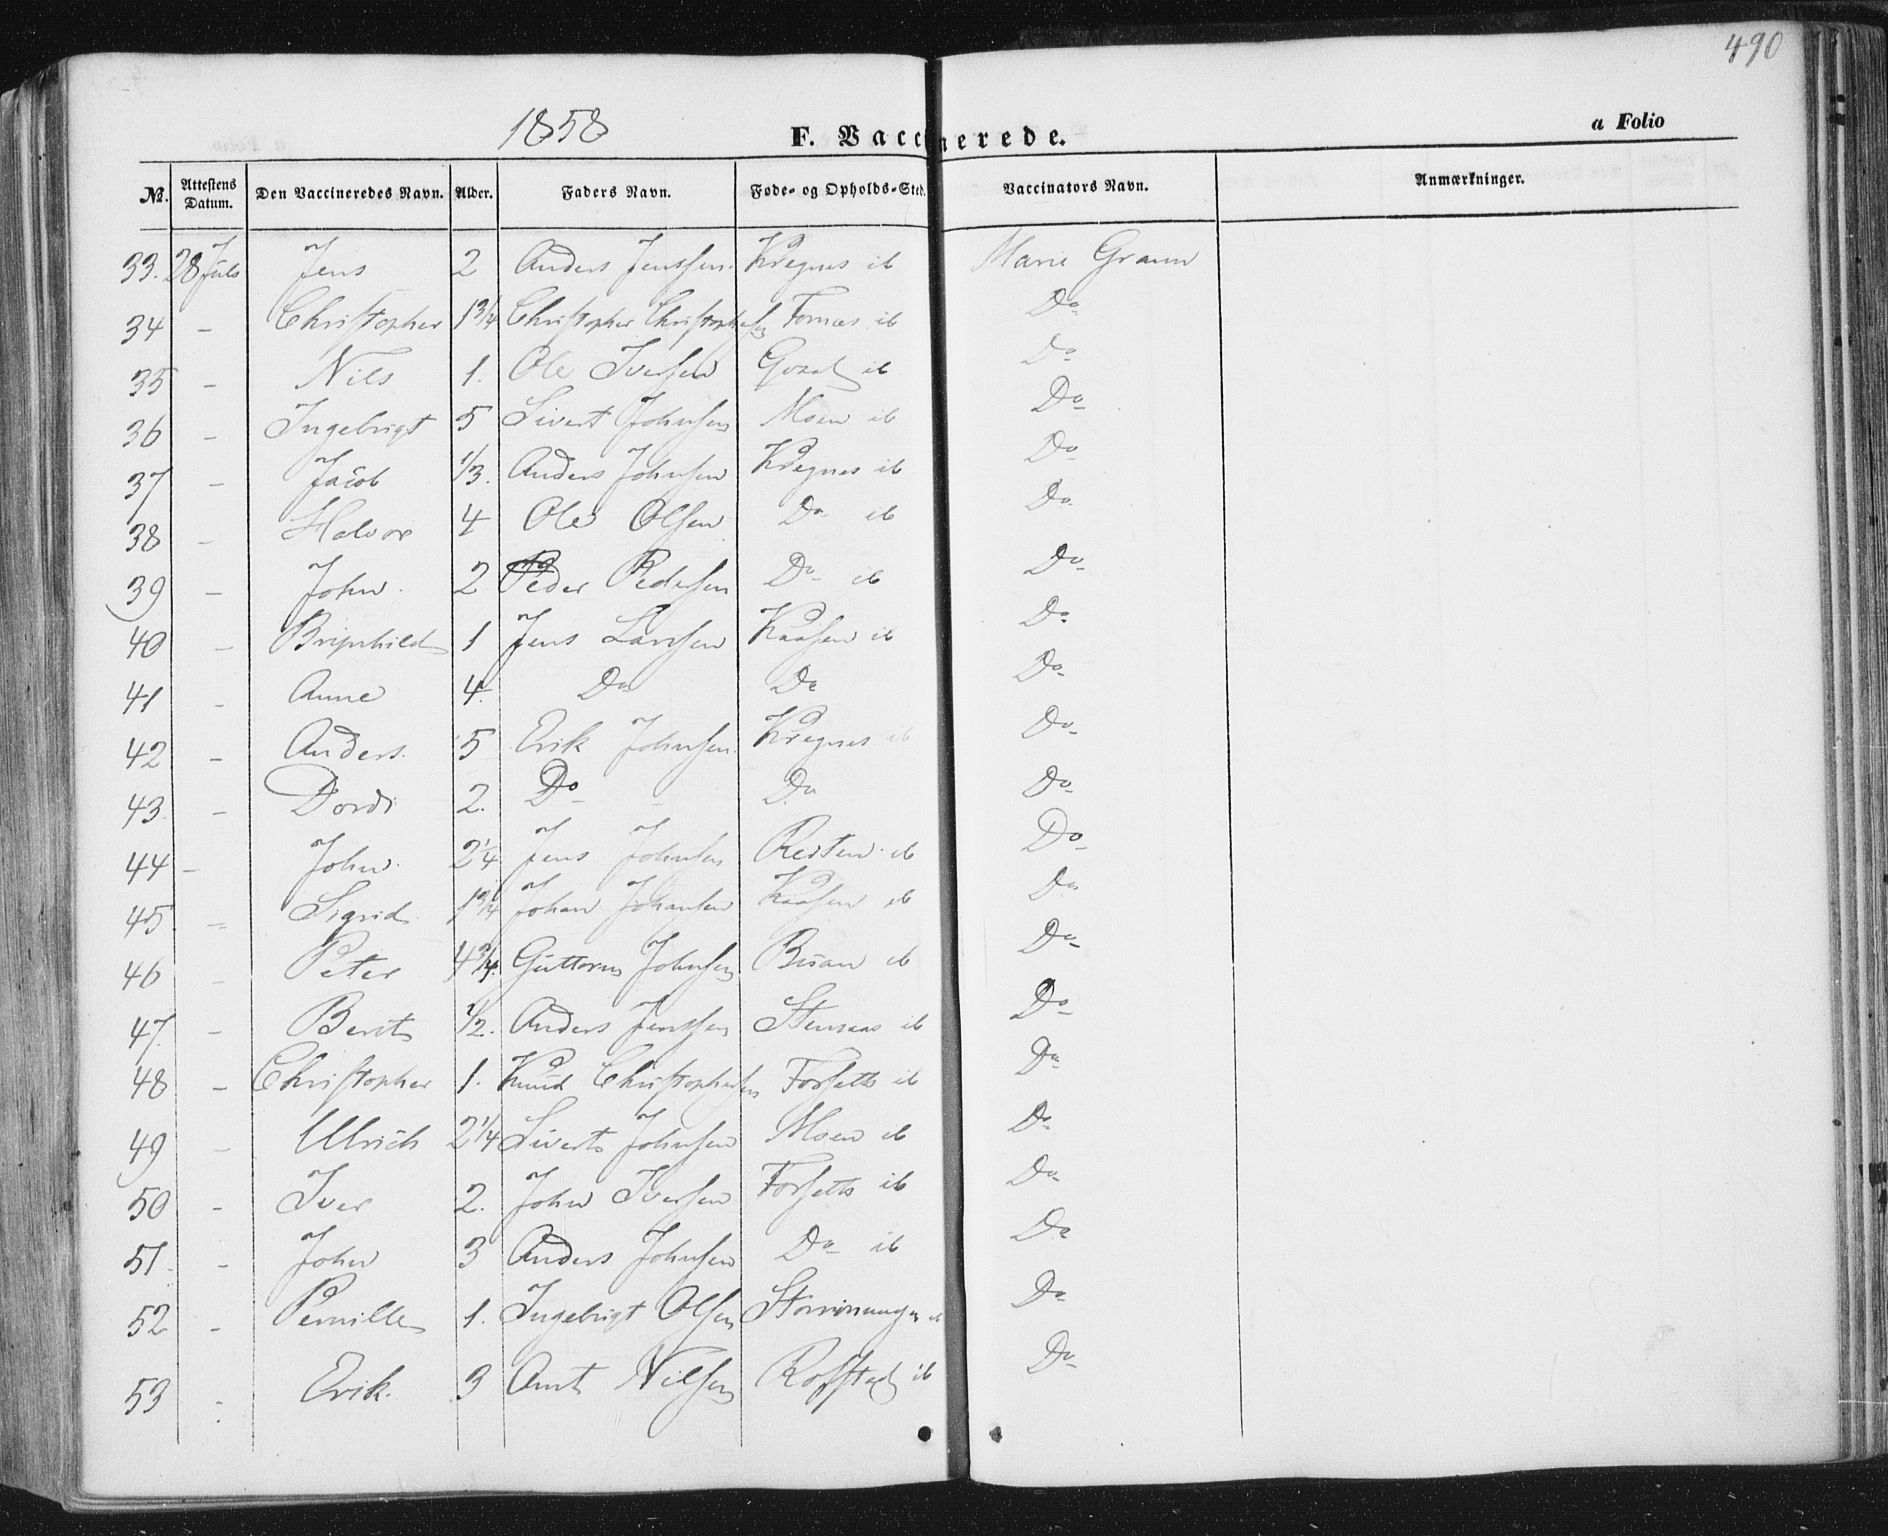 490
1858
F. Vaccinerede.
a Folio
No. Attestens Datum. Den Vaccineredes Navn. Alder. Faders Navn. Føde- og Opholds-Sted. Vaccinators Navn. Anmærkninger.
33. 28 Juls Jens 2 Anders Jenssen. Kregnes ib Marie Gramm
34 - Christopher 1 3/4 Christopher Christophersen Fornes ib Do
35 - Nils 1. Ole Iversen ib Do
36 - Ingebrigt 5 Sivert Johnsen Moen ib Do
37 - Jacob 1/3. Anders Johnsen Kregnes ib Do
38 - Halvor 4 Ole Olsen Do ib Do
39 - John. 2 Peder Pedersen Do ib Do
40 - Brynhild 1 Jens Larssen Kaasen ib Do
41 - Anne 4. Do Do Do
42 - Anders. 5 Erik Johnsen. Kregnes ib Do
43 - Dordi 2. Do - Do Do
44 - John. 2 1/4 Jens Johnsen ib Do
45 - Sigrid 1 3/4 Johan Johansen Kaasen ib Do
46 - Peter 4 3/4. Guttorm Johnsen ib Do
47. - Berit 1/2. Anders Jenssen Stensaas ib Do
48 - Christopher 1. Knud Christophersen Forseth ib Do
49 - Ulrich 2 1/4 Sivert Johnsen Moen ib Do
50 - Iver 2. John Iversen Forseth ib Do
51. - John 3 Anders Johnsen Do ib Do
52 - Pernille 1. Ingebrigt Olsen ib Do
53 - Erik. 3 Arnt Nilsen ib Do